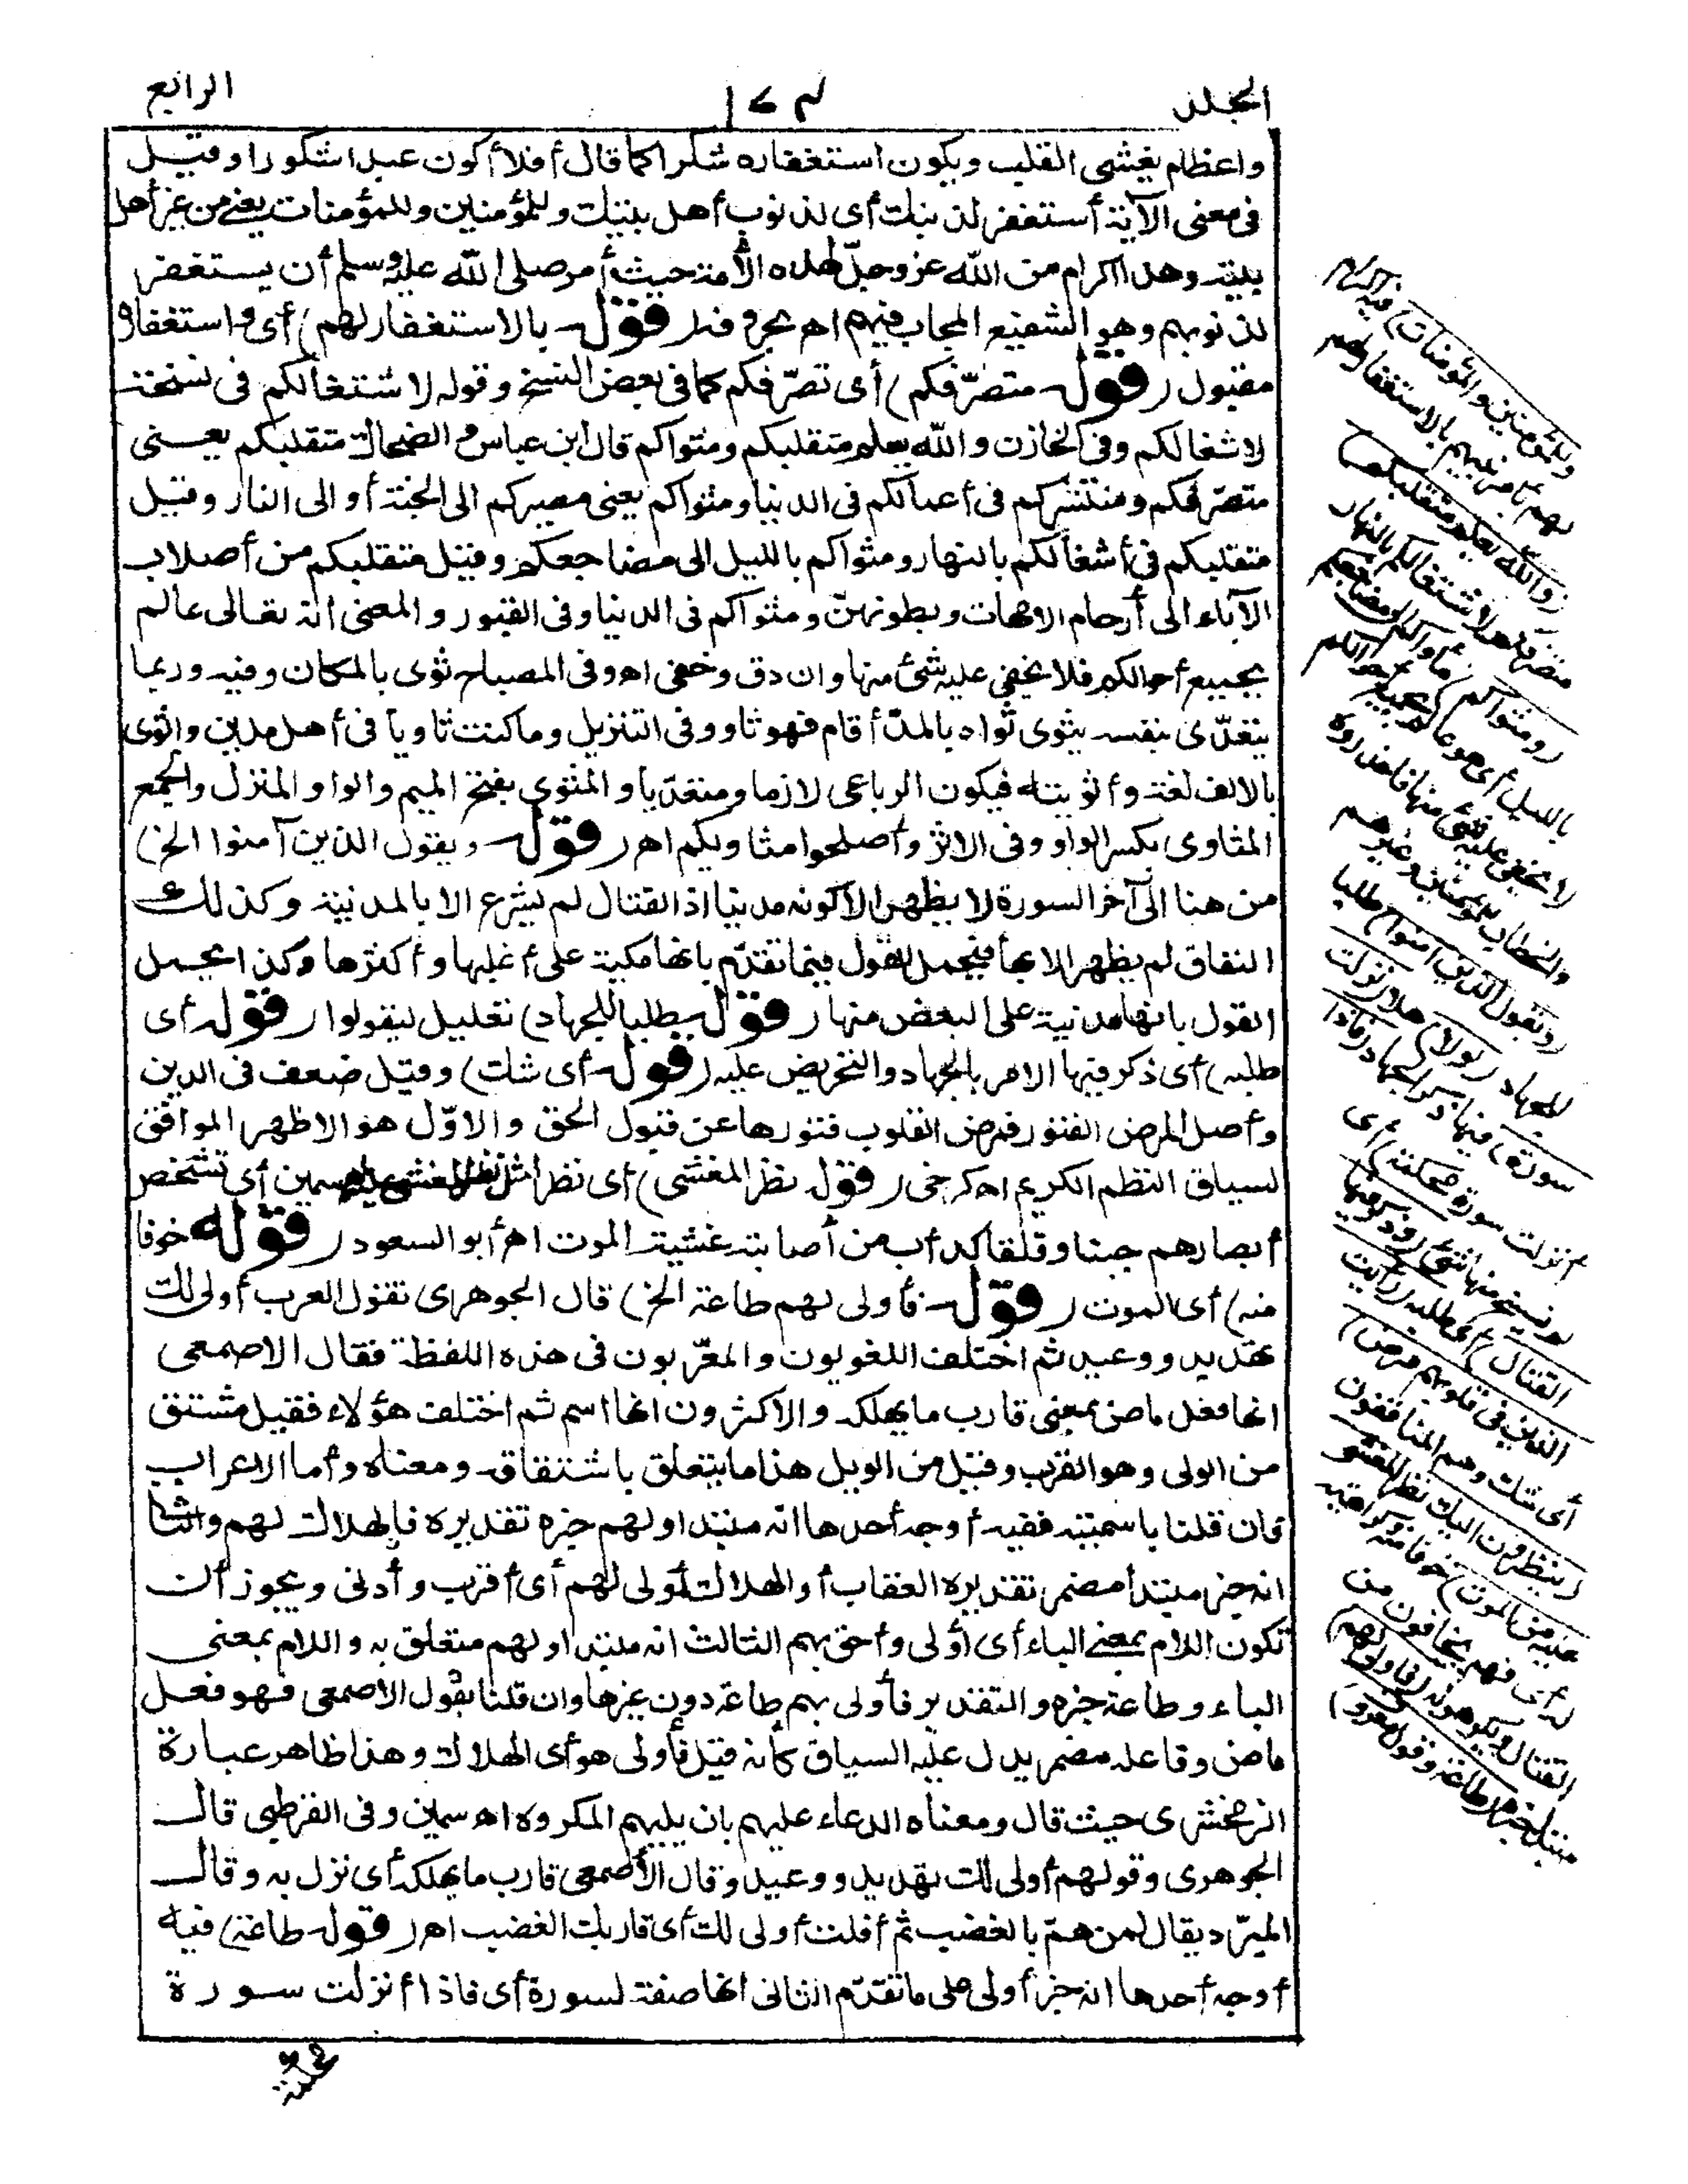 المجلد
١٧٤
الرابع
واعظام يغشى القلب ويكون استغفاره شكرا كما قال أفلا أكون عبدا شكورا وقيل
فى معنى الآية أستغفر لذنبك أى لذنوب أهل بيتك وللمؤمنين وللمؤمنات يعنى من غير أهل
بيته وهذا اكرام من الله عز وجل لهذه الأمة حيث أمر صلى الله عليه وسلم أن يستغفر
لذنوبهم وهو الشفيع المجاب فيهم اه بحروفه (قوله بالاستغفار لهم) أى واستغفاره
مقبول (قوله متصرّفكم) أى تصرّفكم كما فى بعض النسخ وقوله لاشتغالكم فى نسخة
لاشغالكم وفى الخازن والله يعلم متقلبكم ومثواكم قال ابن عباس والضحاك متقلبكم يعنى
متصرّفكم ومنتشركم فى أعمالكم فى الدنيا ومثواكم يعنى مصيركم الى الجنة أو الى النار وقيل
متقلبكم فى أشغالكم بالنهار ومثواكم بالليل الى مضاجعكم وقيل متقلبكم من أصلاب
الآباء الى أرحام الامهات وبطونهنّ ومثواكم فى الدنيا وفى القبور والمعنى انه تعالى عالم
بجميع أحوالكم فلا يخفى عليه شئ منها وان دق وخفى اه وفى المصباح ثوى بالمكان وفيه وربما
يتعدّى بنفسه يثوى ثواء بالمدّ أقام فهو ثاو وفى التنزيل وما كنت ثاويا فى أهل مدين واثوى
بالالف لغة وأثويته فيكون الرباعى لازما ومتعدّيا والمثوى بفتح الميم والواو المنزل والجمع
المثاوى بكسر الواو وفى الاثر وأصلحوا مثاويكم اه (قوله ويقول الذين آمنوا الخ)
من هنا الى آخر السورة لا يظهر الا كونه مدنيا اذ القتال لم يشرع الا بالمدينة وكذلك
النفاق لم يظهر الا بها فيحمل القول فيما تقدّم بانها مكية على أغلبها وأكثرها وكذا يحمل
القول بانها مدنية على البعض منها (قوله طلبا للجهاد) تعليل ليقولوا (قوله أى
طلبه) أى ذكر فيها الامر بالجهاد والتحريض عليه (قوله أى شك) وقيل ضعف فى الدين
وأصل المرض الفتور فمرض القلوب فتورها عن قبول الحق والاوّل هو الاظهر الموافق
لسياق النظم الكريم اه كرخى (قوله نظر المغشى) أى نظرا مثل نظر المغشى عليه اه سمين أى تشخص
أبصارهم جبنا وقلقا كدأب من أصابته غشية الموت اه أبو السعود (قوله خوفا
منه) أى الموت (قوله فأولى لهم طاعة الخ) قال الجوهرى تقول العرب أولى لك
تهديد ووعيد ثم اختلف اللغويون والمعرّبون فى هذه اللفظة فقال الاصمعى
انها فعل ماض بمعنى قارب ما يهلكه والاكثرون انها اسم ثم اختلف هؤلاء فقيل مشتق
من الولى وهو القرب وقيل من الويل هذا ما يتعلق باشتقاقه ومعناه وأما الاعراب
فان قلنا باسميته ففيه أوجه أحدها انه مبتدا ولهم خبره تقديره فالهلاك لهم والثانى
انه خبر مبتدأ مضمر تقديره العقاب أو الهلاك أولى لهم أى أقرب وأدنى ويجوز أن
تكون اللام بمعنى الباء أى أولى وأحق بهم الثالث انه مبتدا ولهم متعلق به واللام بمعنى
الباء وطاعة خبره والتقدير فأولى بهم طاعة دون غيرها وان قلنا بقول الاصمعى فهو فعل
ماض وفاعله مضمر يدل عليه السياق كأنه قيل فأولى هو أى الهلاك وهذا ظاهر عبارة
الزمخشرى حيث قال ومعناه الدعاء عليهم بان يليهم المكروه اه سمين وفى القرطبى قال
الجوهرى وقولهم أولى لك تهديد ووعيد وقال الأصمعى قارب ما يهلكه أى نزل به وقال
المبرّد يقال لمن همّ بالغضب ثم أفلت أولى لك أى قاربك الغضب اه (قوله طاعة) فيه
أوجه أحدها انه خبر أولى على ما تقدّم الثانى انها صفة لسورة أى فاذا أنزلت سورة
وللمؤمنين والمؤمنات) فيه اكرام
لهم بأمر نبيهم بالاستغفار لهم
(والله يعلم متقلبكم)
متصرفكم لاشتغالكم بالنهار
(ومثواكم) مأواكم الى مضاجعكم
بالليل أى هو عالم بجميع أحوالكم
لا يخفى عليه شئ منها فاحذروه
والخطاب للمؤمنين وغيرهم
(ويقول الذين آمنوا) طلبا
للجهاد (لولا) هلا (نزلت
سورة) فيها ذكر الجهاد (فاذا
أنزلت سورة محكمة) أى
لم ينسخ منها شئ (وذكر فيها
القتال) أى طلبه (رأيت
الذين فى قلوبهم مرض)
أى شك وهم المنافقون
(ينظرون اليك نظر المغشى
عليه من الموت) خوفا منه وكراهية
له أى فهم يخافون من
القتال ويكرهونه (فأولى لهم)
مبتدأ خبره (طاعة وقول معروف)